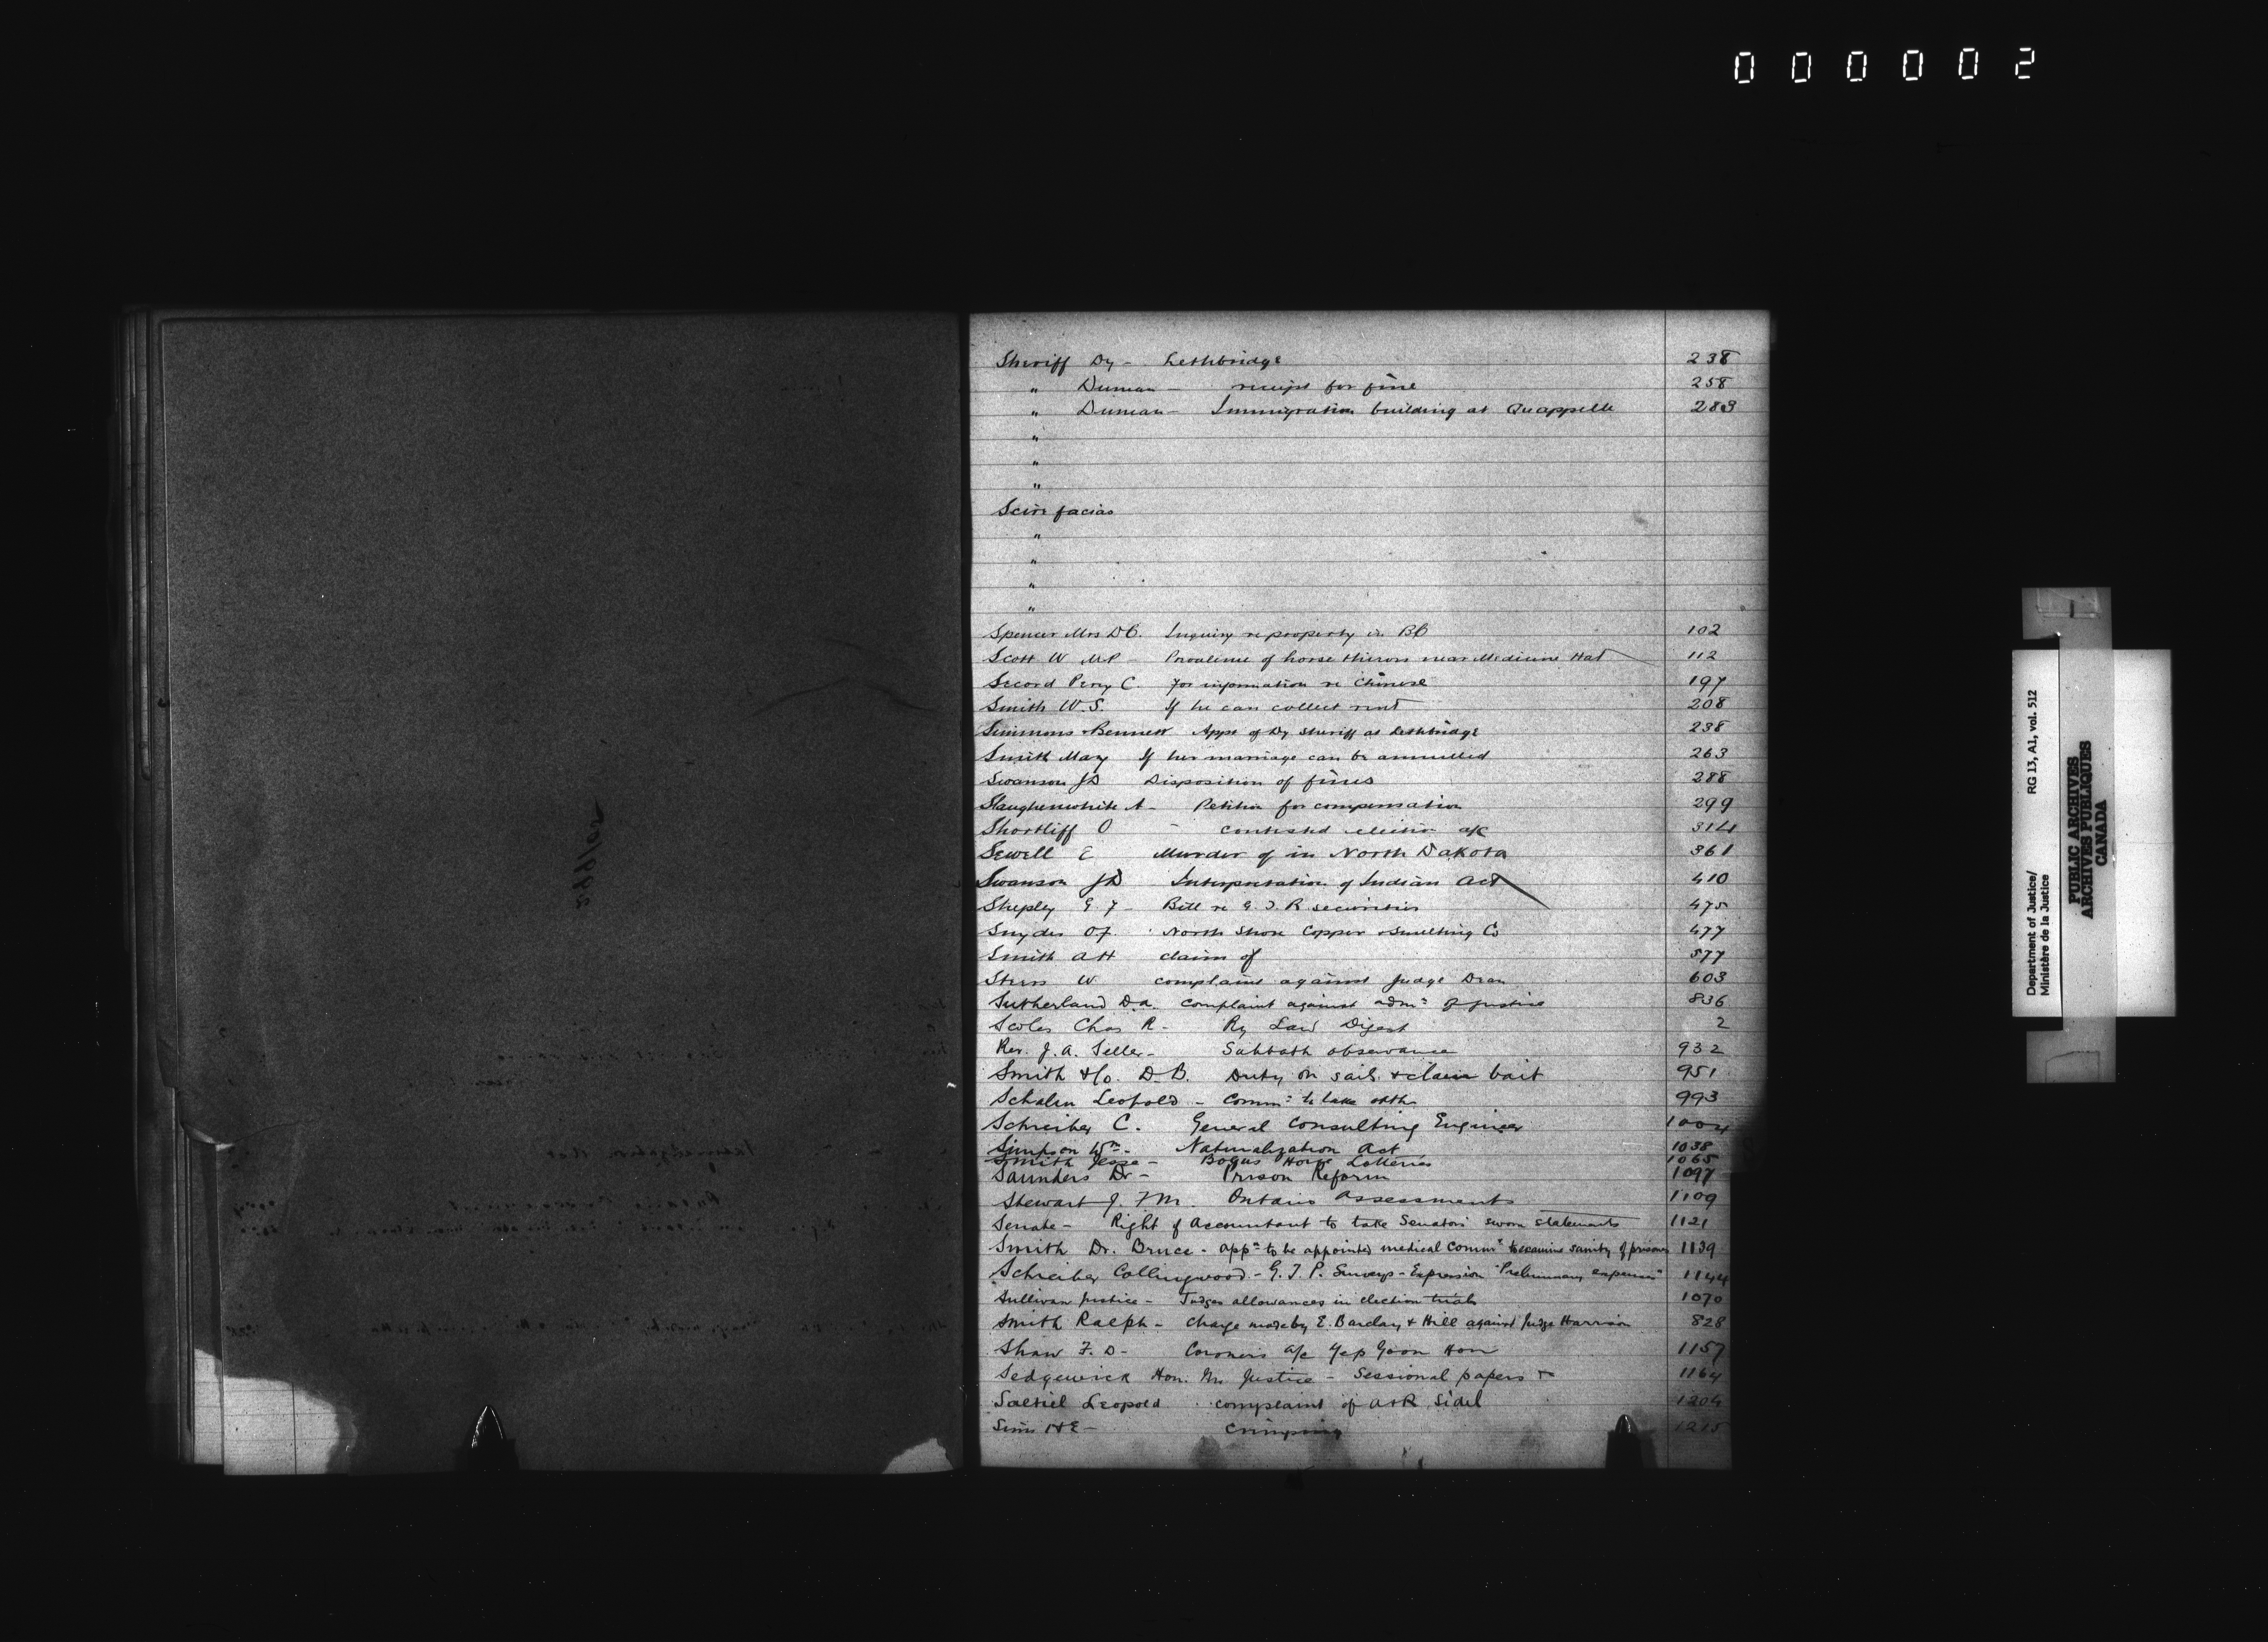 000002
Sheriff Dy - Lethbridge 238
" Duncan - receipt for fine 258
" Duncan - Immigration building at Quappelle 283
"
"
"
Scire facias
"
"
"
"
Spencer Mrs D C. Inquiry re property in BC 102
Scott W MP - Prevalence of horse thieves near Medicine Hat 112
Secord Perry C. For information re Chinese 197
Smith W. S. If he can collect rent 208
Simmons Bennett Appt of Dy Sheriff at Lethbridge 238
Smith May If her marriage can be annulled 263
Swanson J D Disposition of fines 288
Slaughenwhite A - Petition for compensation 299
Shortliff O - contested election a/c 314
Sewell E Murder of in North Dakota 361
Swanson J D Interpretation of Indian Act 410
Shepley G. F - Bill re G. T. R securities 475
Snyder O. F. North Shore Copper & Smelting Co 477
Smith A H claim of 577
W complaint against Judge 603
Sutherland D. a. Complaint against admn of justice 836
Scoles Chas R - Ry Law Digest 2
Rev. J. A. Seller - Sabbath observance 932
Smith & Co. D. B. Duty on sails & clam bait 951
Schalin Leopold - Commn to take oaths 993
Schreiber C. General Consulting Engineer 1004
Simpson Wm - Naturalization Act 1038
Smith Jesse - Bogus Horse Lotteries 1065
Saunders Dr - Prison Reform 1097
Stewart J. F M. Ontario Assessments 1109
Senate - Right of Accountant to take Senators' sworn statements 1121
Smith Dr. Bruce - appn to be appointed medical commr to examine sanity of prisoners 1139
Schreiber Collingwood - G. T. P. Surveys - Expression "Preliminary expenses" 1144
Sullivan Justice - Judges allowances in election trials 1070
Smith Ralph - Charge made by E. Barclay & Hill against Judge Harrison 828
Shaw F. D - Coroners a/c Yep Goon Hon 1157
Sedgewick Hon. Mr Justice - Sessional papers 1164
Leopold complaint of Sidel 1204
Sims H E - Crimping 1215
Department of Justice/ RG 13, A1, vol. 512
Ministère de la Justice
PUBLIC ARCHIVES
ARCHIVES PUBLIQUES
CANADA